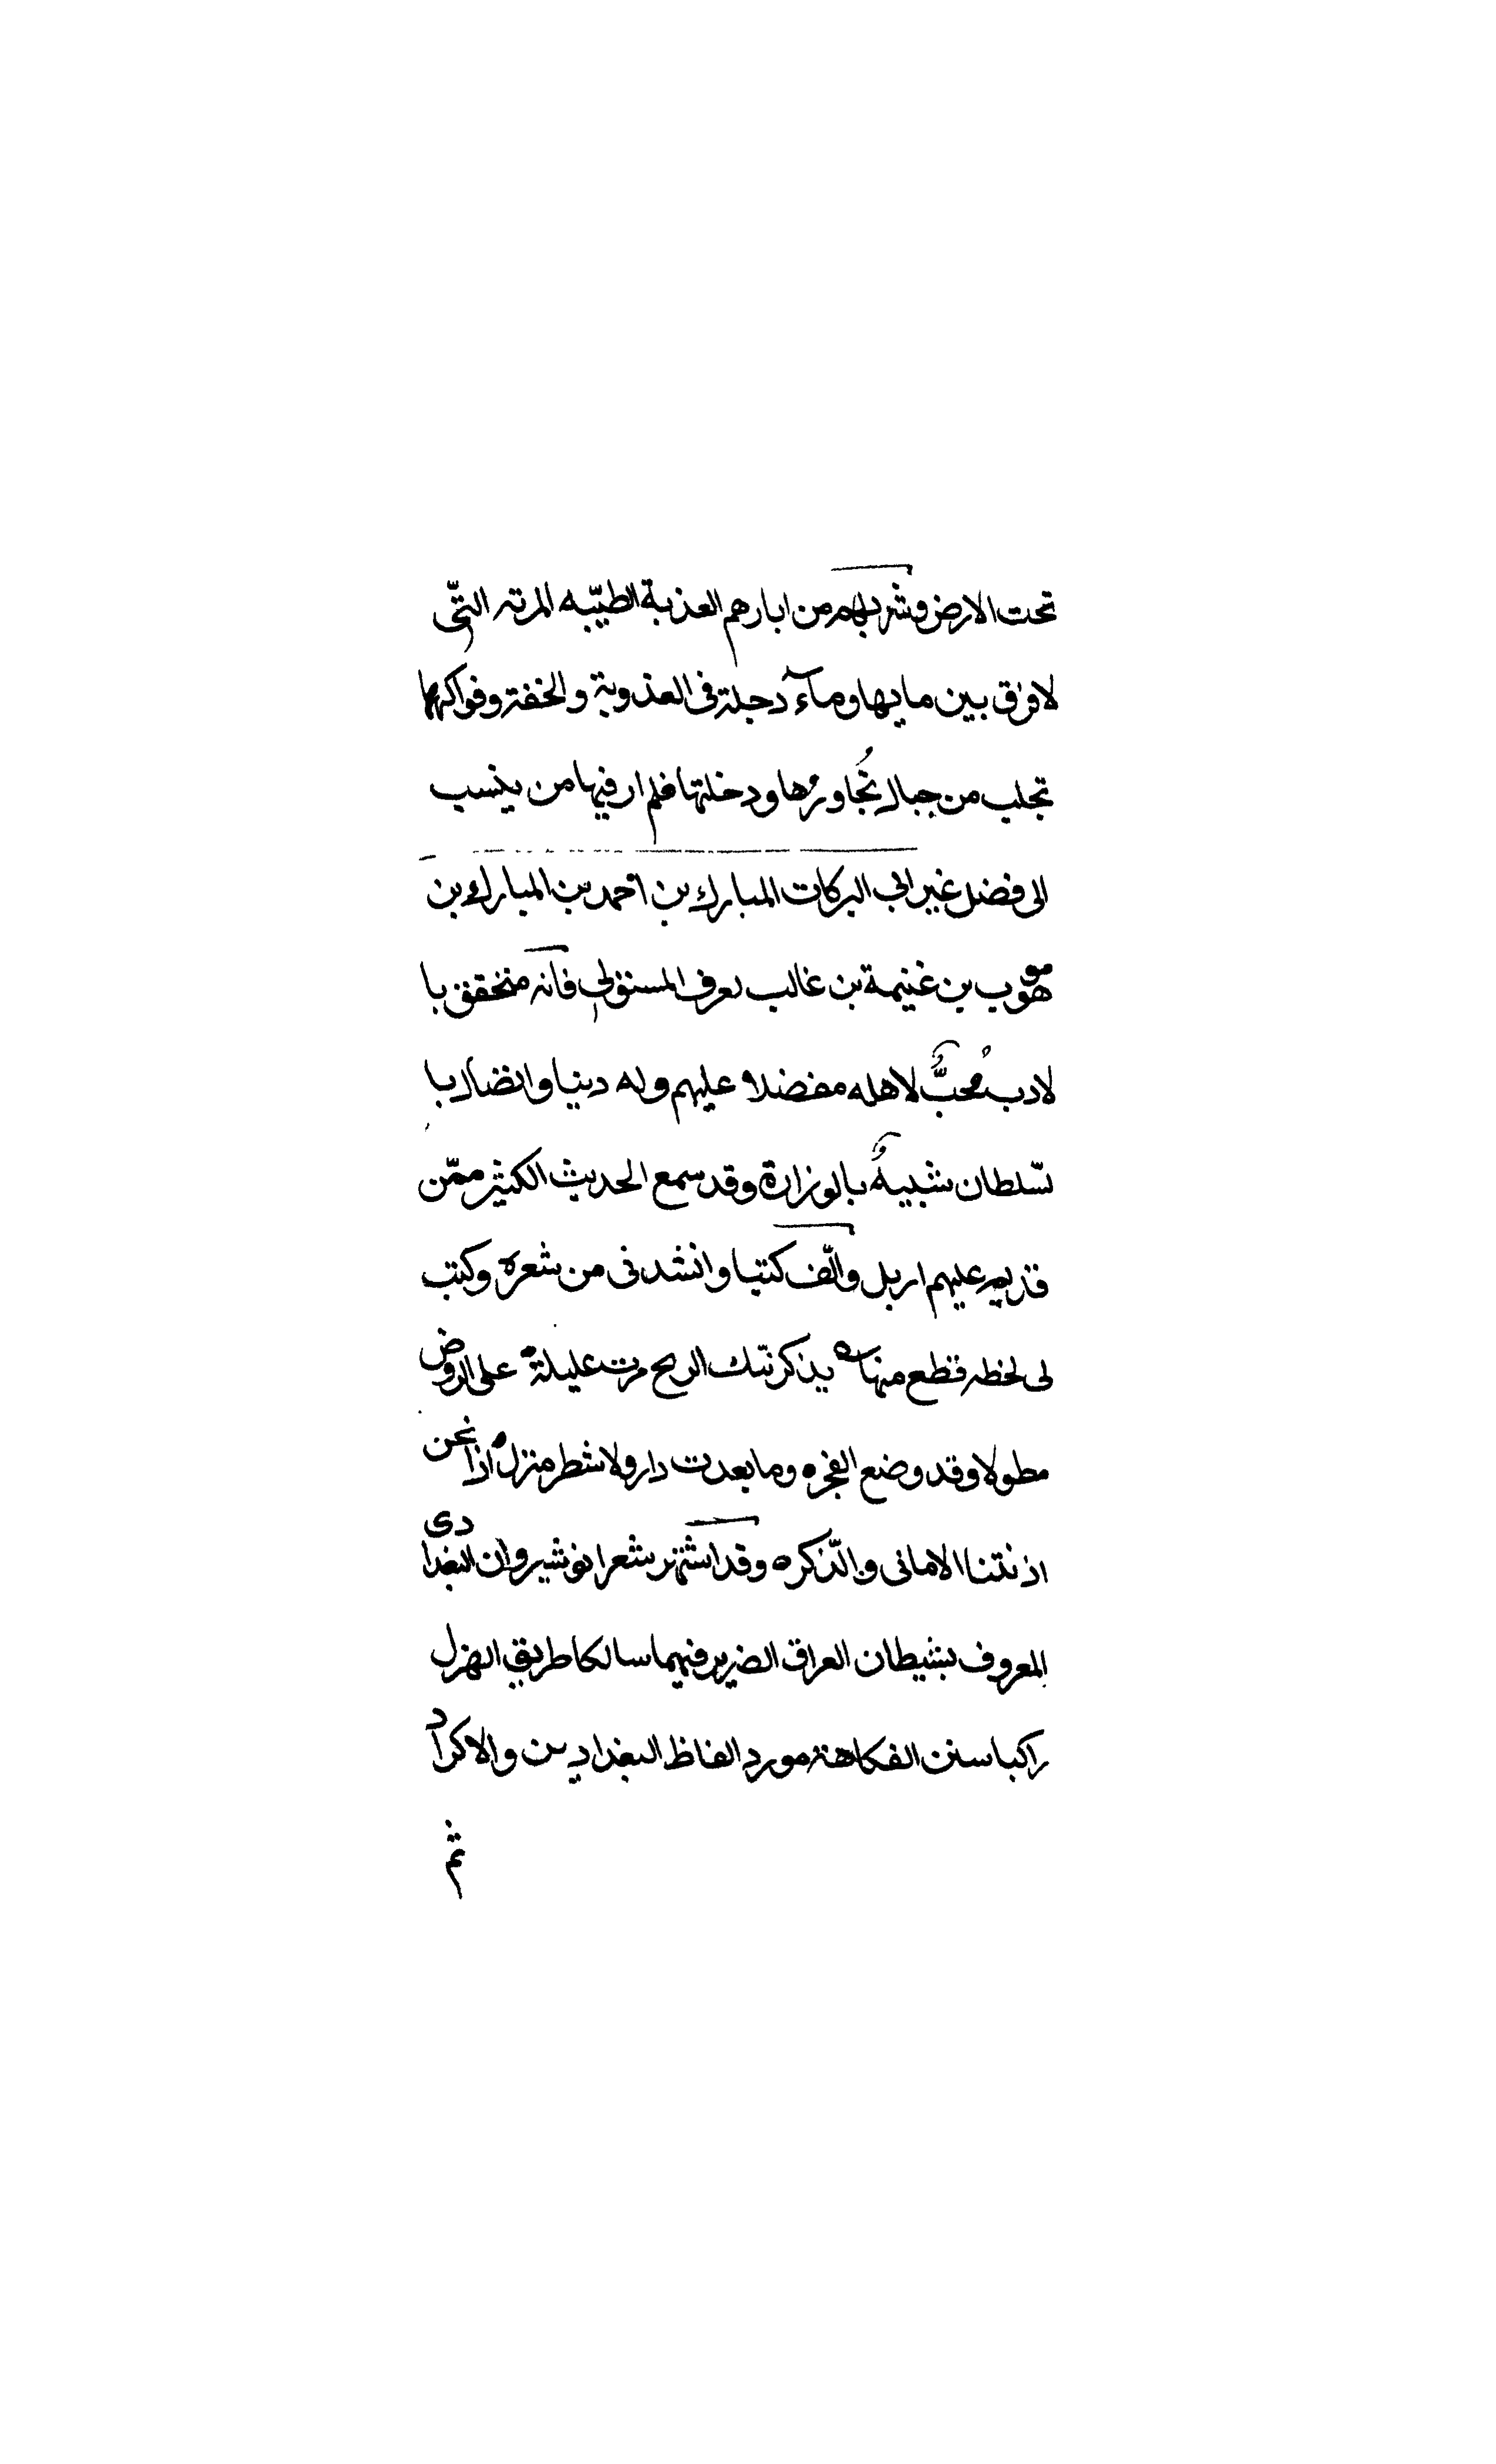 تحت الارض وشربهم من ابارهم العذبة الطيّبه المرته التّى
لا فرق بين مايها ومآء دجلة فى العذوبة والخفة وفواكهها
تجلب من جبال تُجاورُها ودخلتها فلم ار فيها من ينسب
الى فضل غير ابى البركات المبارك بن احمد بن المبارك بن
موهوب بن غنيمة بن غالب يعرف المستوفى فانه متحقق با
لادب مُحبٌّ لاهله مفضلا عليهم وله دينا واتصال با
لسّلطان شبيهٌ بالوزارة وقد سمع الحديث الكثير ممّن
قدم عليهم اربل والّف كتبا وانشدنى من شعره وكتب
لى بخطه قطع منها يذكرنيك الريح مرت عليلة على الروض
مطولا وقد وضع الفجره وما بعدت دار ولا شطر منزل اذا نحن
ادنتنا الامانى والذّكره وقد اشتهر شعر انوشيروان البغدادى
المعروف بشيطان العراق الضرير فيهما سالكا طريق الهزل
راكبا سنن الفكاهة مورد الفاظ البغداديين والاكراد
ثم